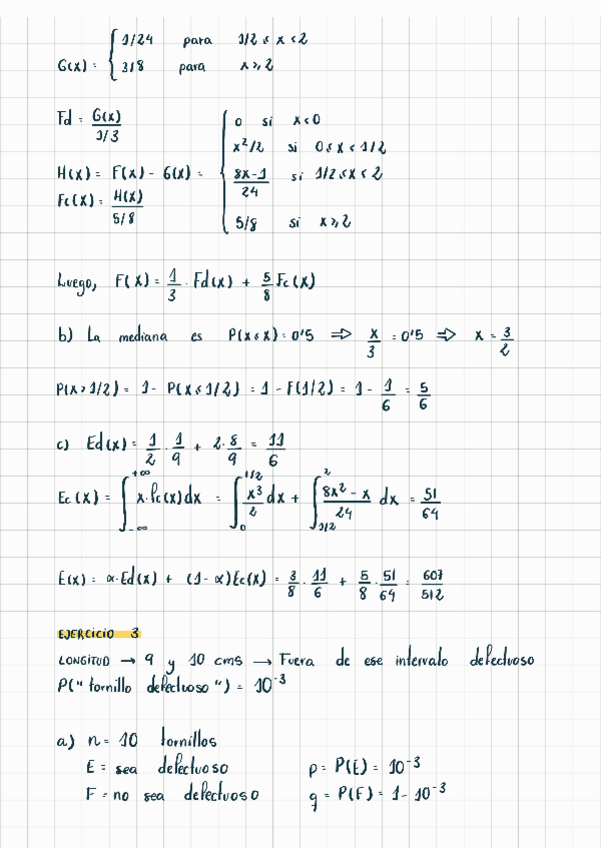 G(x) = { 1/24 para 1/2 ≤ x < 2
3/8 para x ≥ 2
Fd = G(x) / 1/3
H(x) = F(x) - G(x) = { 0 si x<0
x²/2 si 0≤x<1/2
8x-1/24 si 1/2≤x<2
5/8 si x≥2
Fc(x) = H(x) / 5/8
Luego, F(x) = 1/3 · Fd(x) + 5/8 Fc(x)
b) La mediana es P(x≤x) = 0'5 ⇒ x/3 = 0'5 ⇒ x = 3/2
P(x>1/2) = 1 - P(x≤1/2) = 1 - F(1/2) = 1 - 1/6 = 5/6
c) Ed(x) = 1/2 · 1/9 + 2·8/9 = 11/6
Ec(x) = ∫_{-∞}^{+∞} x·fc(x)dx = ∫_0^{1/2} x³/2 dx + ∫_{1/2}^2 8x²-x/24 dx = 51/64
E(x) = α·Ed(x) + (1-α)Ec(x) = 3/8 · 11/6 + 5/8 · 51/64 = 607/512
EJERCICIO 3
LONGITUD → 9 y 10 cms → Fuera de ese intervalo defectuoso
P("tornillo defectuoso") = 10⁻³
a) n = 10 tornillos
E = sea defectuoso p = P(E) = 10⁻³
F = no sea defectuoso q = P(F) = 1 - 10⁻³